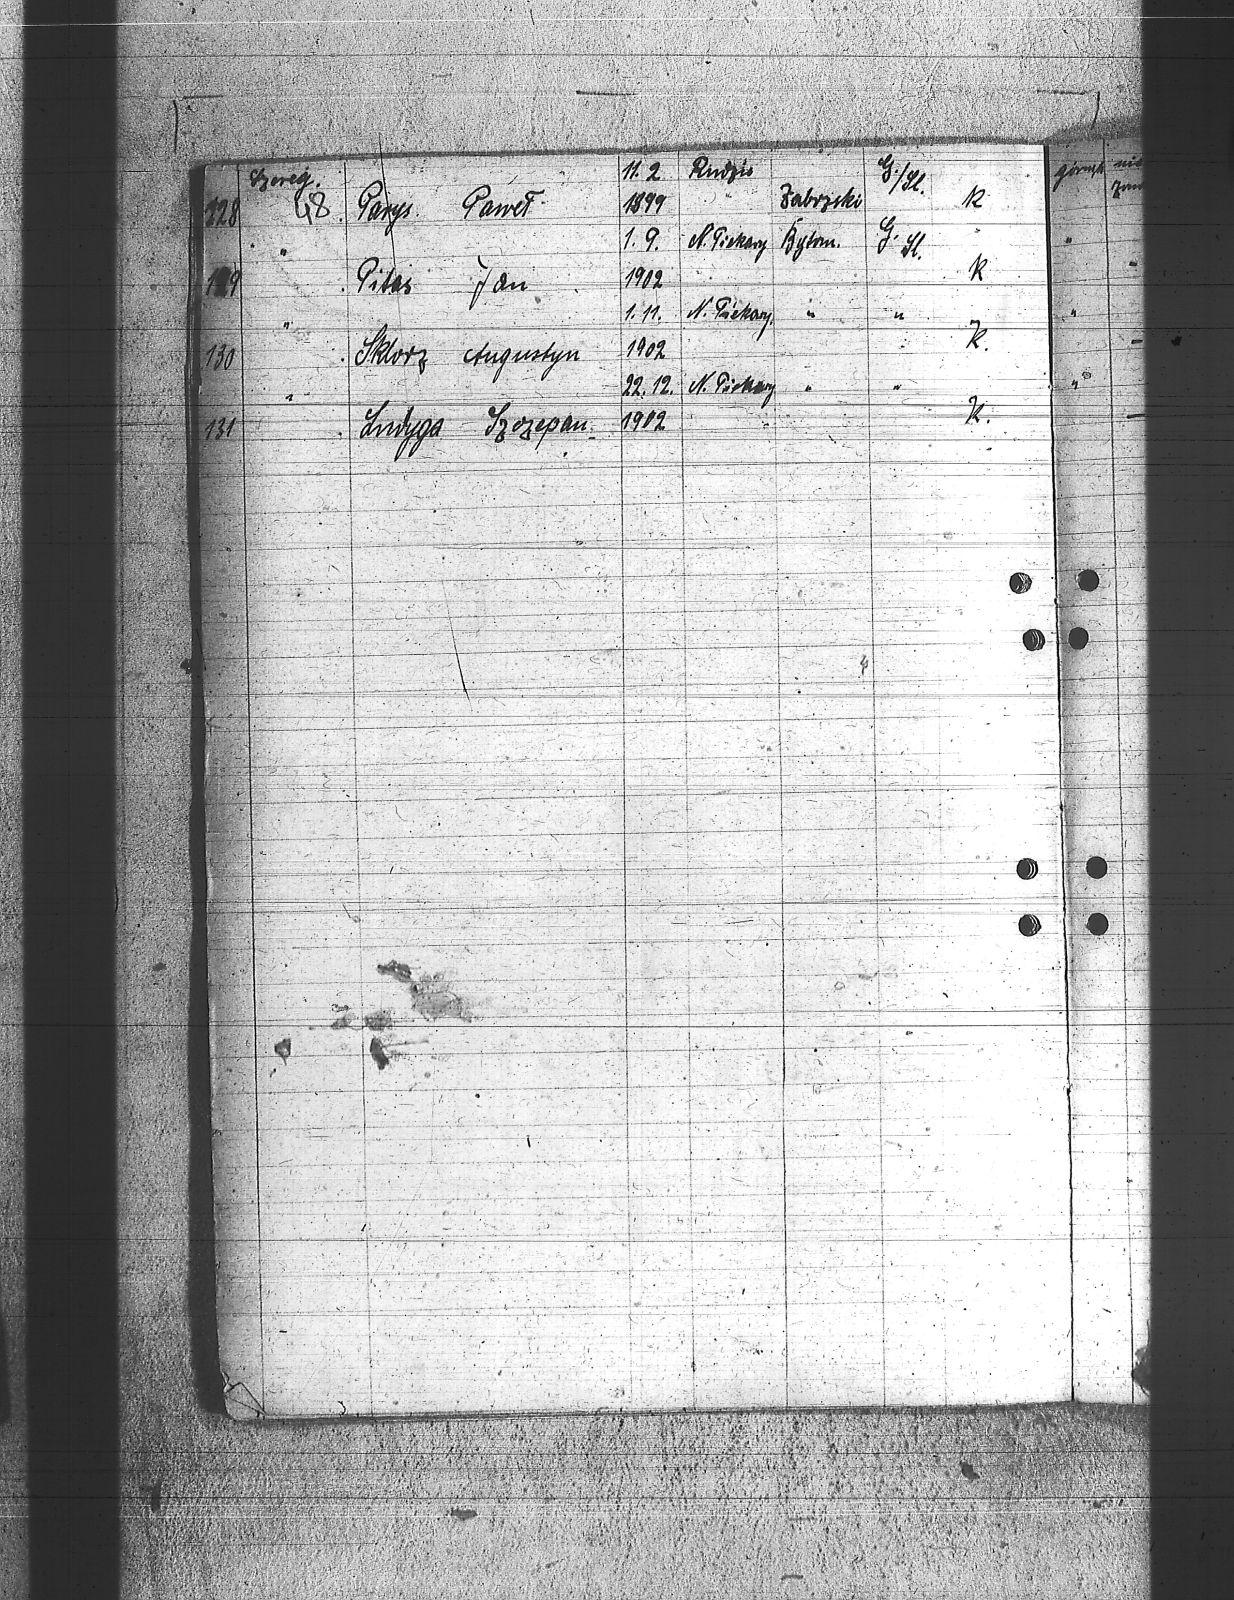 Szereg. 11. 2 Rudzie G./Śl. górnik nie
128 48. Parys. Paweł 1899 " Zabrzski K
" 1. 9. N. Piekary Bytom. G. Śl. "
129 Pitas Jan 1902 K -
" 1. 11. N. Piekary. " " "
130 Sklorz Augustyn 1902 K. -
" 22. 12. N. Piekary " " "
131 Ludyga Szczepan 1902 K. -